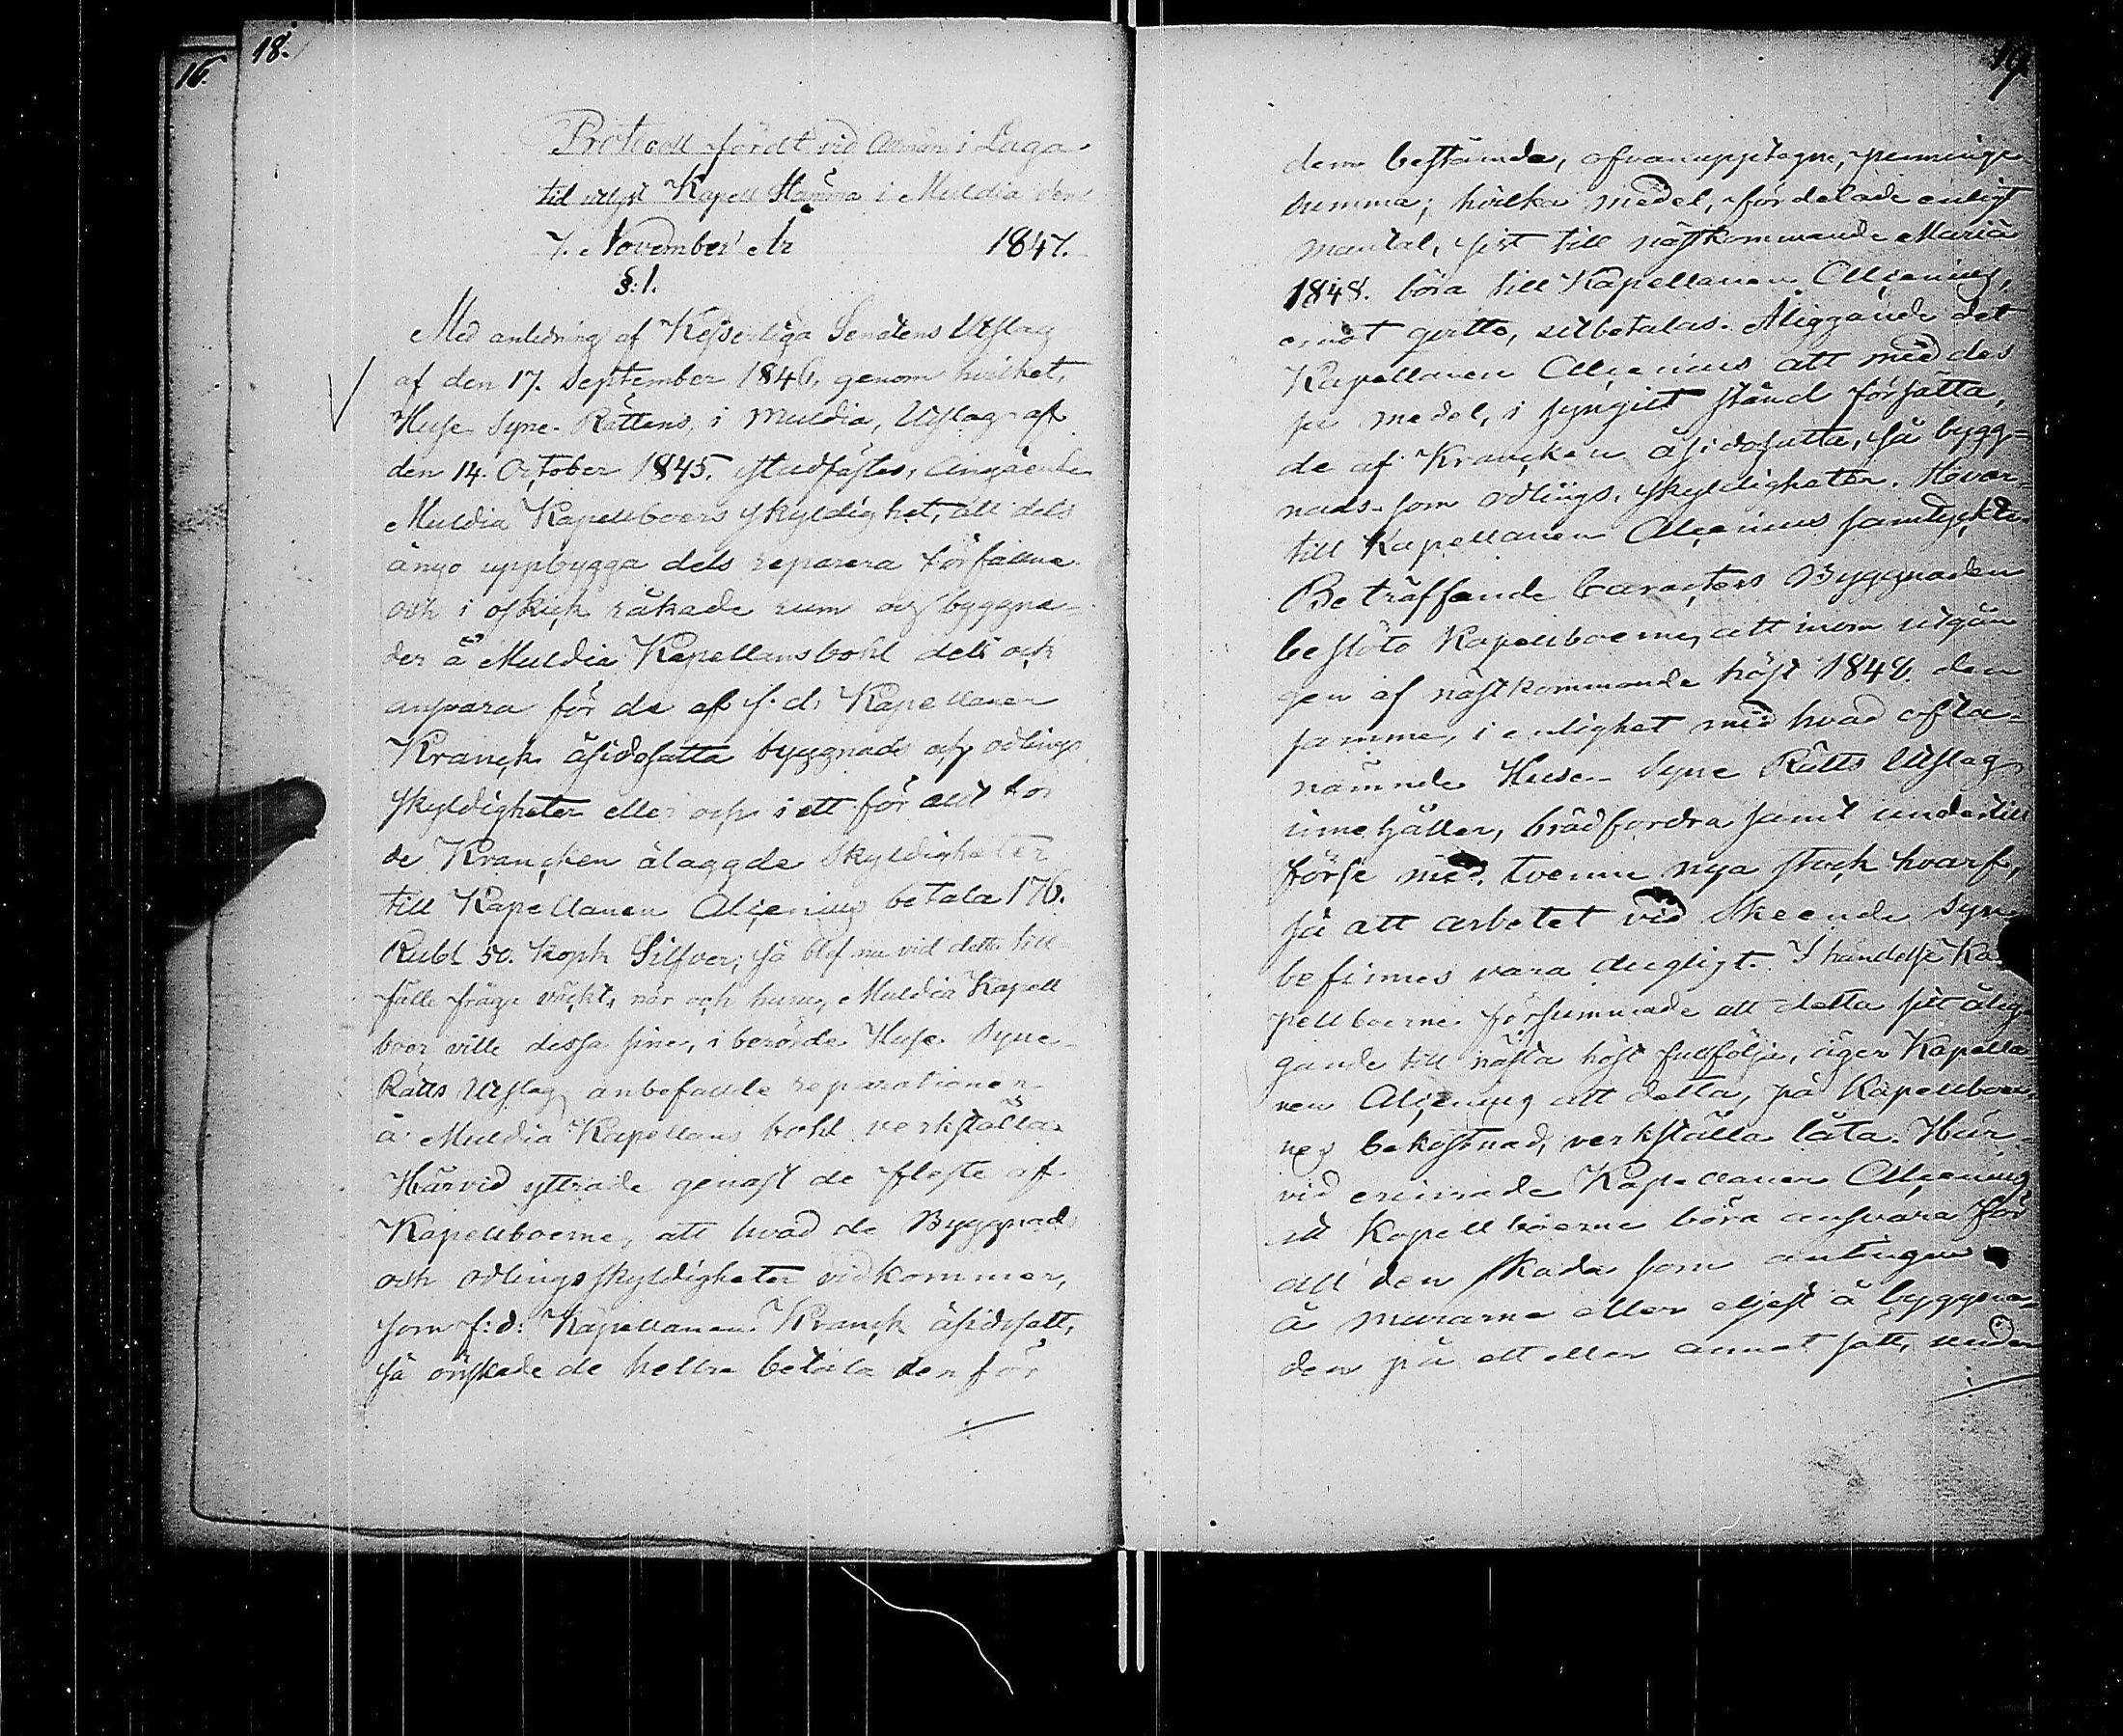 16.
18.
Protocoll fördt vid Allmän i Laga
tid utlyst Kapell Stämma i Muldia den
7. November År 1847.
§. 1.
Med anledning af Kejserliga Senatens Utslag
af den 17. September 1846, genom hvilket,
Huse Syne-Rättens, i Muldia, Utslag af
den 14. October 1845. stadfästes, angående
Muldia Kapellboers skyldighet, att dels
ånyo uppbygga dels reparera förfallne
och i ofskick råkade rum och byggna-
der å Muldia Kapellansbohl dels och
ansvara för de af f. d. Kapellanen
Kranck åsidosatta byggnads och odlings
skyldigheter eller och i ett för allt för
de Krancken ålaggde skyldigheter
till Kapellanen Alcenius betala 176.
Rubl 50. Kopk Silfver; så blef nu vid detta till-
fälle fråga väckt, när och huru, Muldia Kapell
boer ville dessa sine, i berörde Huse Syne-
Rätts Utslag anbefallde reparationer
å Muldia Kapellans bohl verkställa.
Härvid yttrade genast de fleste af
Kapellboerne, att hvad de Byggnads
och odlingsskyldigheter vidkommer,
som f: d: Kapellanen Kranck åsidosatt,
så önskade de hellre betala den för
19
dem bestämda, ofvanupptagne, penninge
summa; hvilka medel, fördelade enligt
mantal, sist till nästkommande Maria
1848. böra till Kapellanen Alcenius,
emot qvitto, utbetalas. Åliggande det
Kapellanen Alcenius att med des
se medel, i syngilt stånd försätta,
de af Krancken åsidosatta, så bygg-
nads- som odlings skyldigheter. Hvar-
till Kapellanen Alcenius samtyckte.
Beträffande Caracters Byggnaden
beslöto Kapellboerne, att inom utgån
gen af nästkommande höst 1848. den
samma, i enlighet med hvad ofta-
nämnde Huse- Syne Rätts Utslag
innehåller, brädfordra samt undertill
förse med tvenne nya stock hvarf,
så att arbetet vid skeende syn
befinnes vara dugligt. I händelse Ka
pellboerne försummade att detta sitt ålig-
gande till nästa höst fullfölja, äger Kapella-
nen Alcenius att detta, på Kapellboer-
nes bekostnad, verkställa låta. Här-
vid erinrade Kapellanen Alcenius
att Kapellboerne böra ansvara för
all den skada som antingen
å murarne eller eljest å byggna-
den på ett eller annat sätt, under